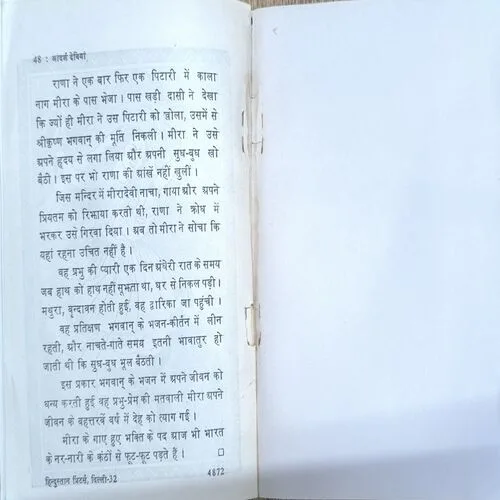 48 : आदर्श देवियां
राणा ने एक बार फिर एक पिटारी में काला
नाग मीरा के पास भेजा । पास खड़ी दासी ने देखा
कि ज्यों ही मीरा ने उस पिटारी को खोला, उसमें से
श्रीकृष्ण भगवान् की मूर्ति निकली । मीरा ने उसे
अपने हृदय से लगा लिया और अपनी सुध-बुध खो
बैठी । इस पर भी राणा की आंखें नहीं खुलीं ।
जिस मन्दिर में मीरादेवी नाचा, गाया और अपने
प्रियतम को रिझाया करती थी, राणा ने क्रोध में
भरकर उसे गिरवा दिया । अब तो मीरा ने सोचा कि
यहां रहना उचित नहीं है ।
वह प्रभु की प्यारी एक दिन अंधेरी रात के समय
जब हाथ को हाथ नहीं सूझता था, घर से निकल पड़ी ।
मथुरा, वृन्दावन होती हुई, वह द्वारिका जा पहुंची ।
वह प्रतिक्षण भगवान् के भजन-कीर्तन में लीन
रहती, और नाचते-गाते समय इतनी भावातुर हो
जाती थी कि सुध-बुध भूल बैठती ।
इस प्रकार भगवान् के भजन में अपने जीवन को
धन्य करती हुई वह प्रभु-प्रेम की मतवाली मीरा अपने
जीवन के बहत्तरवें वर्ष में देह को त्याग गई ।
मीरा के गाए हुए भक्ति के पद आज भी भारत
के नर-नारी के कंठों से फूट-फूट पड़ते हैं । □
हिन्दुस्तान प्रिंटर्स, दिल्ली-32 4872